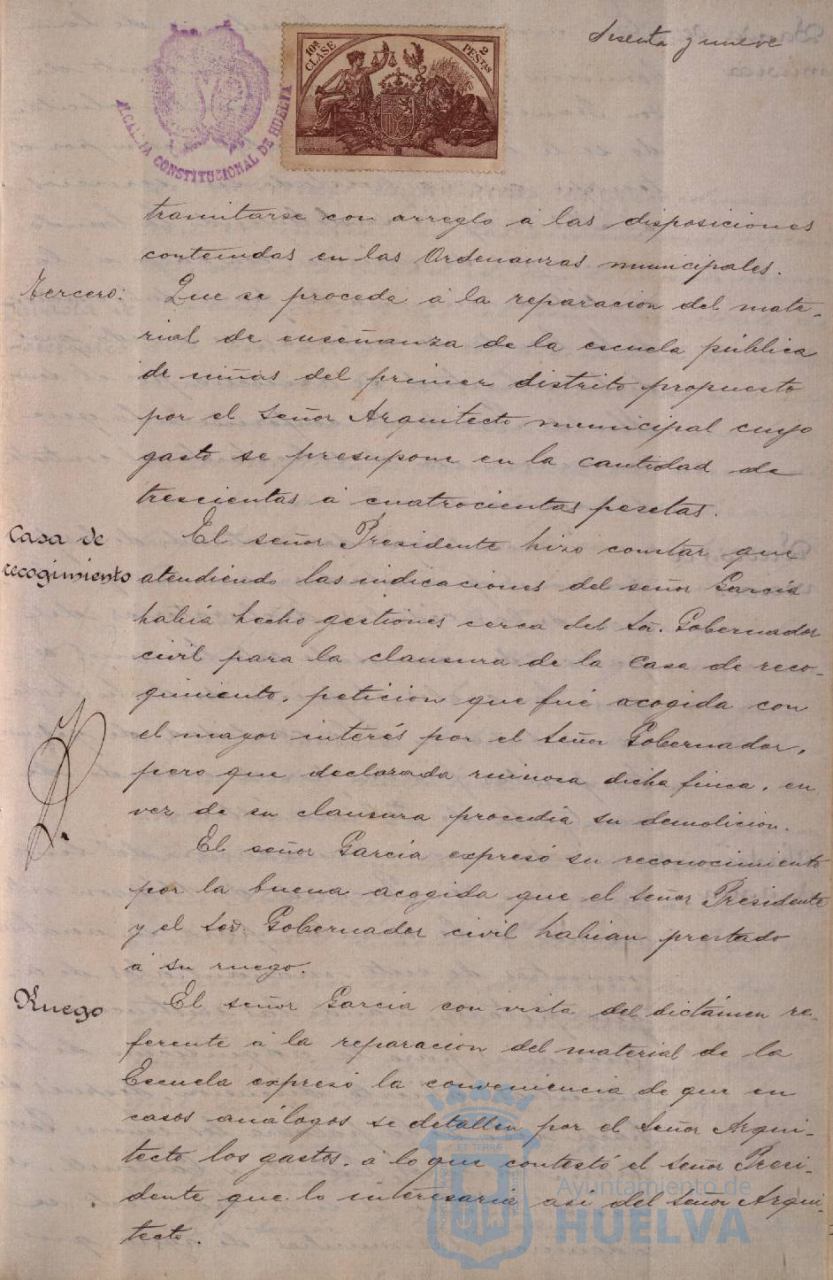 Sesenta y nueve
10ª CLASE
2 PESTAS
ALCALDIA CONSTITUCIONAL DE HUELVA
tramitarse con arreglo á las disposiciones
contenidas en las Ordenanzas municipales.
Tercero: Que se proceda á la reparacion del mate-
rial de enseñanza de la escuela pública
de niñas del primer distrito propuesto
por el Señor Arquitecto municipal cuyo
gasto se presupone en la cantidad de
trescientas á cuatrocientas pesetas.
Casa de
recogimiento
El señor Presidente hizo constar que
atendiendo las indicaciones del señor García
había hecho gestiones cerca del Sor. Gobernador
civil para la clausura de la Casa de reco-
gimiento, peticion que fué acogida con
el mayor interés por el Señor Gobernador,
pero que declarada ruinosa dicha finca, en
vez de su clausura procedia su demolicion.
El señor García expresó su reconocimiento
por la buena acogida que el Señor Presidente
y el Sor. Gobernador civil habian prestado
á su ruego.
Ruego
El señor García con vista del dictámen re-
ferente á la reparacion del material de la
Escuela expresó la conveniencia de que en
casos análogos se detallen por el Señor Arqui-
tecto los gastos, á lo que contestó el señor Presi-
dente que lo interesaria así del Señor Arqui-
tecto.
Ayuntamiento de
HUELVA